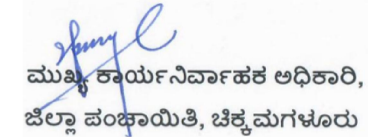 ಮುಖ್ಯ ಕಾರ್ಯನಿರ್ವಾಹಕ ಅಧಿಕಾರಿ,
ಜಿಲ್ಲಾ ಪಂಚಾಯಿತಿ, ಚಿಕ್ಕಮಗಳೂರು